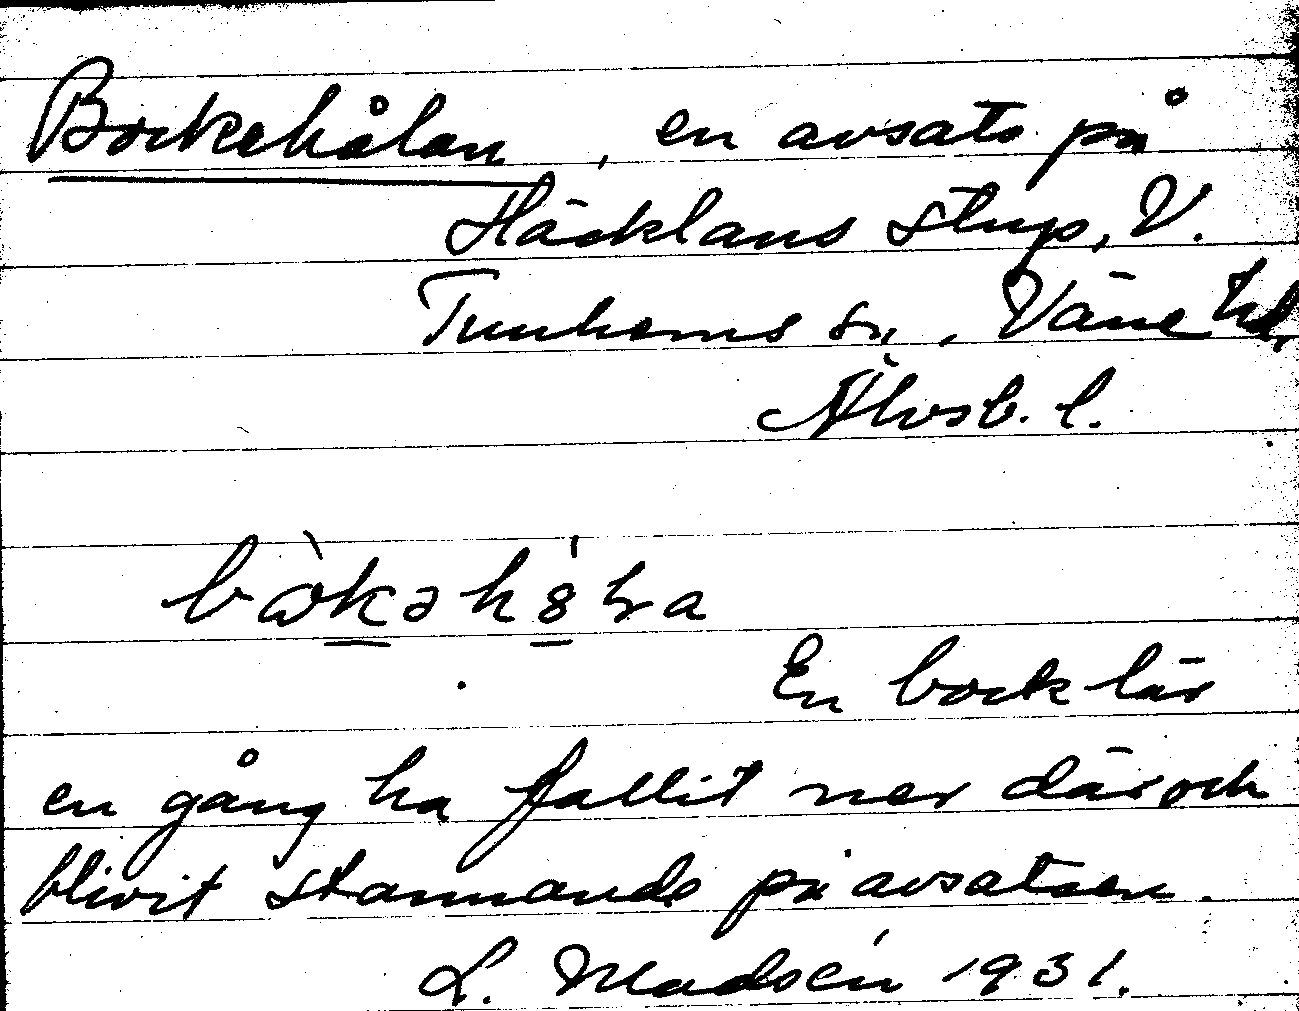 Bockehålan, en avsats på
Häcklans stup, V.
Tunhems sn, Väne hd,
Älvsb. l.
En bock lär
en gång ha fallit ner där och
blivit stannande på avsatsen.
L. Madsén 1931.